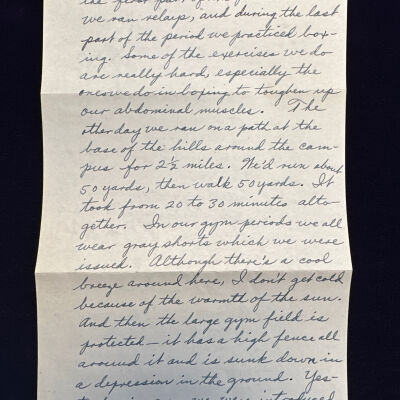 the first part of
we ran relays, and during the last
part of the period we practiced box-
ing. Some of the exercises we do
are really hard, especially the
ones we do in boxing to toughen up
our abdominal muscles. The
other day we ran on a path at the
base of the hills around the cam-
pus for 2½ miles. We'd run about
50 yards, then walk 50 yards. It
took from 20 to 30 minutes alto-
gether. In our gym periods we all
wear gray shorts which we were
issued. Although there's a cool
breeze around here, I don't get cold
because of the warmth of the sun.
And then the large gym field is
protected — it has a high fence all
around it and is sunk down in
a depression in the ground. Yes-
we were introduced